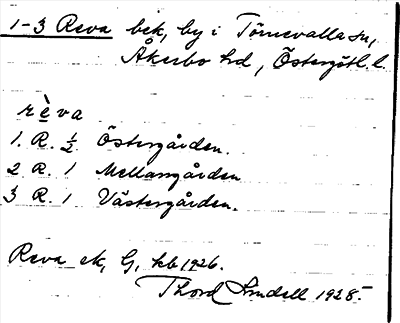 1-3 Reva bek, by i Törnevalla sn,
Åkerbo hd, Östergötl. l.
rèva
1. R. 1/2 Östergården.
2 R. 1 Mellangården
3 R. 1 Västergården.
Reva ek, G, kb 1926.
Thord Lindell 1928.